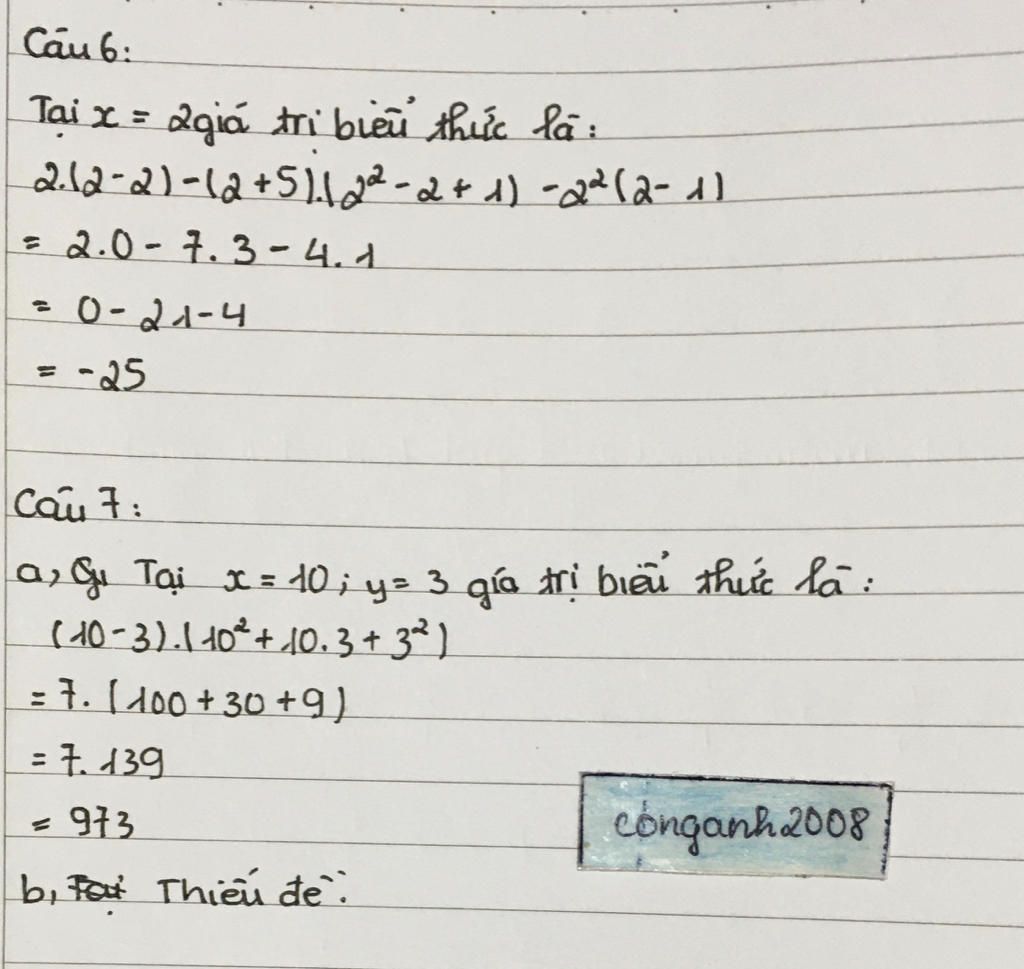 Câu 6:
Tại x = 2 giá trị biểu thức là:
2.(2-2)-(2+5).(2²-2+1)-2²(2-1)
= 2.0-7.3-4.1
= 0-21-4
= -25
Câu 7:
a, Tại x=10; y=3 gía trị biểu thức là:
(10-3).(10²+10.3+3²)
= 7.(100+30+9)
= 7.139
= 973
conganh2008
b, Thiếu đề.